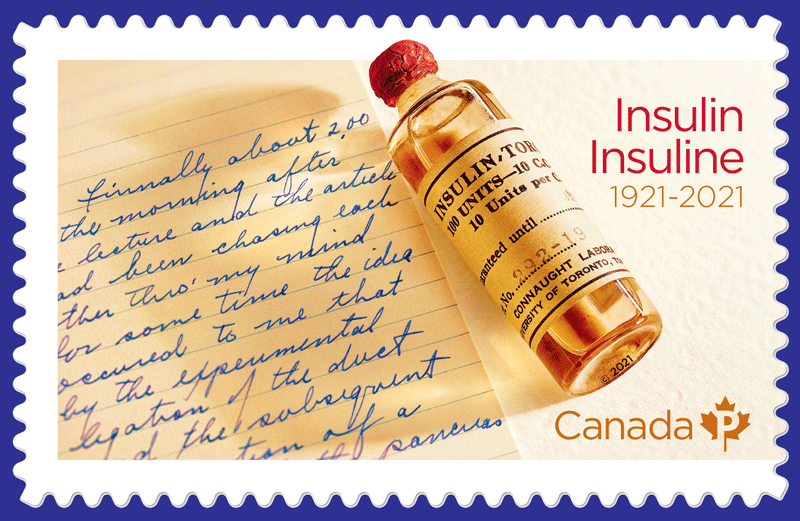 Finnally about 2.00
the morning after
lecture and the article
ad been chasing each
ther thro' my mind
for some time the idea
occured to me that
by the experimental
ligation of the duct
nd the subsequent
tion off a
the pancreas
INSULIN-TORO
100 UNITS—10 C.C.
10 Units per C.
aranteed until
No. 292-19
CONNAUGHT LABORA
VERSITY OF TORONTO, TO
© 2021
Insulin
Insuline
1921-2021
Canada P